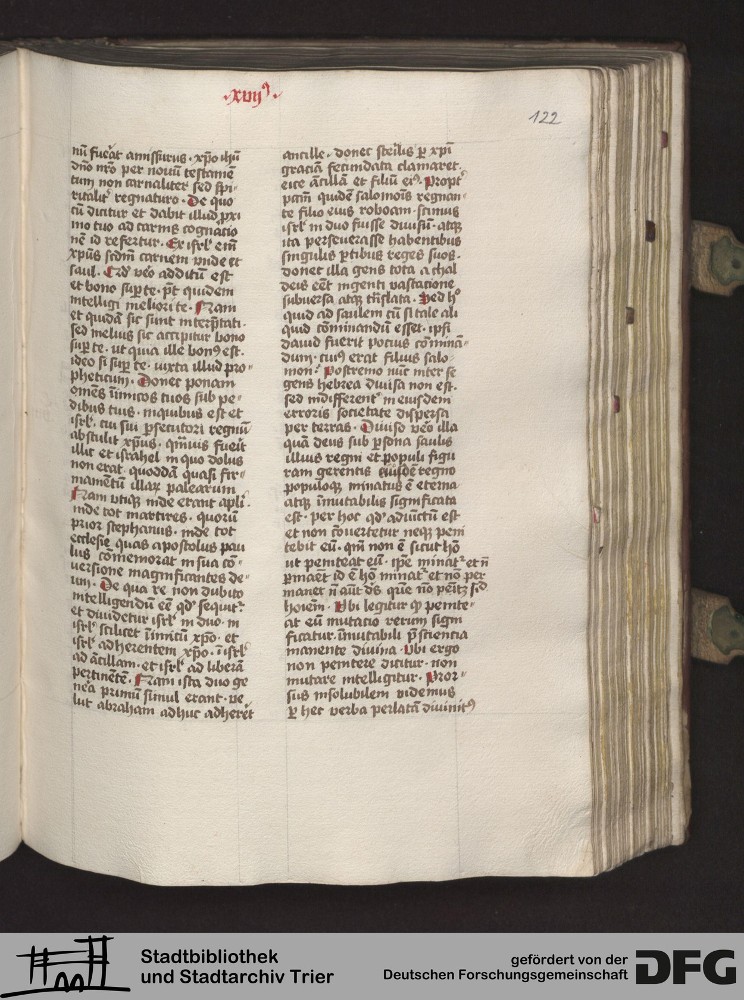 ·xvij⁹·
122
nū fuerat amissurus · xp̄o ihū
dn̄o nr̄o per nouū testamē
tum non carnaliter sed spi-
ritalit᷒ regnaturo · De quo
cū dicitur et dabit illud p̄xi
mo tuo ad carnis cognatio
nē id refertur · Ex isrl̄ em̄
xpūs scdm̄ carnem vnde et
saul · Qd̄ vēo additū est
et bono sup̄ te · p̄t quidem
intelligi meliori te · Nam
et quidā sic sunt interp̄tati ·
sed melius sic accipitur bono
sup̄ te · ut quia ille bon⁹ est ·
ideo si sup̄ te · iuxta illud pro-
pheticum · Donec ponam
omēs inimicos tuos sub pe-
dibus tuis · inquibus est et
isrl̄ · cui sui p̄secutori regnū
abstulit xpūs · qm̄uis fuerit
illic et israhel in quo dolus
non erat · quoddā quasi fru-
mamētū illaꝝ palearum
Nam vtiqꝫ inde erant apl̄i ·
inde tot martires · quorū
prior stephanus · inde tot
ecclesie quas apostolus pau
lus cōmemorat in sua cō-
versione magnificantes de-
um · De qua re non dubito
intelligendū eē qd̄ sequit᷒ ·
et diuidetur isrl̄ in duo · in
isrl̄ scilicet inimicū xp̄o · et
isrl̄ adherentem xp̄o · ī isrl̄
ad ācillam · et isrl̄ ad liberā
pertinētē · Nam ista duo ge
nera primū simul erant · ve
lut abraham adhuc adheret
ancille · donec sterilis ꝑ xpī
graciā fecundata clamaret ·
eice ācillā et filiū ei⁹ · Propt᷒
pctm̄ quidē salomōis regnan-
te filio eius roboam · scimus
isrl̄ in duo fuisse diuisū · atqꝫ
ita perseuerasse habentibus
singulis ꝑtibus reges suos ·
donec illa gens tota a chal
deis eēt ingenti vastacione
subuersa atqꝫ trāslata · Sed h⁹
quid ad saulem cū si tale ali
quid cōminandū esset · ipsi
dauid fuerit potius cōminā-
dum · cui⁹ erat filius salo-
mon · Postremo nūc inter se
gens hebrea diuisa non est ·
sed indifferent᷒ in eiusdem
erroris societate dispersa
per terras · Diuisio vēo illa
quā deus sub ꝑsona saulis
illius regni et populi figu
ram gerentis eidem regno
populoqꝫ minatus ē eterna
atqꝫ īmutabilis significata
est · per hoc qd̄ adiūctū est
et non cōuertetur neqꝫ peni
tebit eū · qm̄ non ē sicut hō
ut peniteat eū · ipē minat᷒ et nō
ꝑmaēt id ē hō minat᷒ et nō per
manet n̄ aūt ds̄ quē nō penitꝫ sic̄
hoīem · Vbi legitur ꝙ penite-
at eū mutatio rerum signi
ficatur · īmutabili p̄scientia
manente diuina · Vbi ergo
non penitere dicitur · non
mutare intelligitur · Pror-
sus insolubilem videmus
ꝑ hec verba perlatā diuinit⁹
Stadtbibliothek
und Stadtarchiv Trier
gefördert von der
Deutschen Forschungsgemeinschaft
DFG